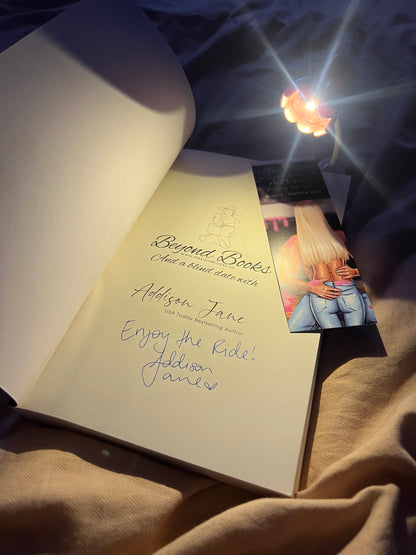 Beyond Books
And a blind date with
Addison Jane
USA Today Bestselling Author
Enjoy the Ride!
Addison
Jane